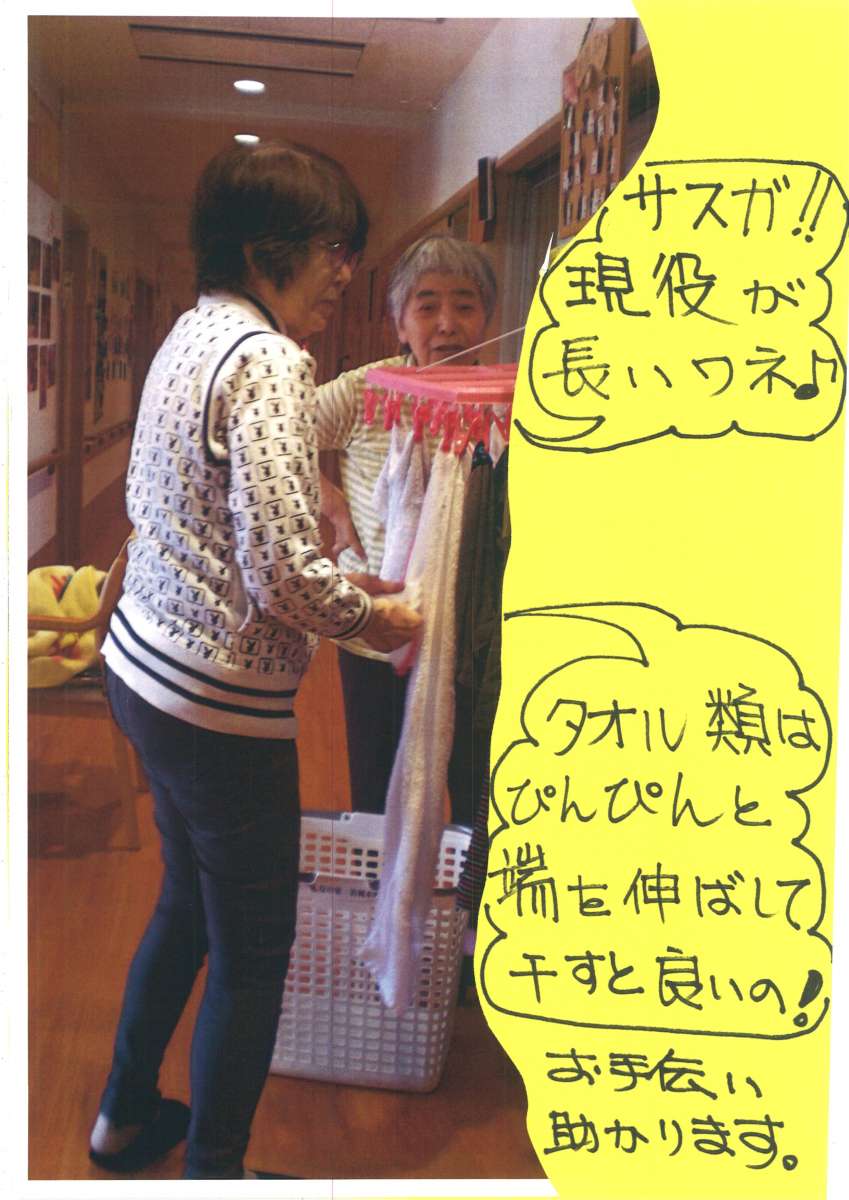 サスガ!!
現役が
長いワネ♪
タオル類は
ぴんぴんと
端を伸ばして
干すと良いの!
お手伝い
助かります。